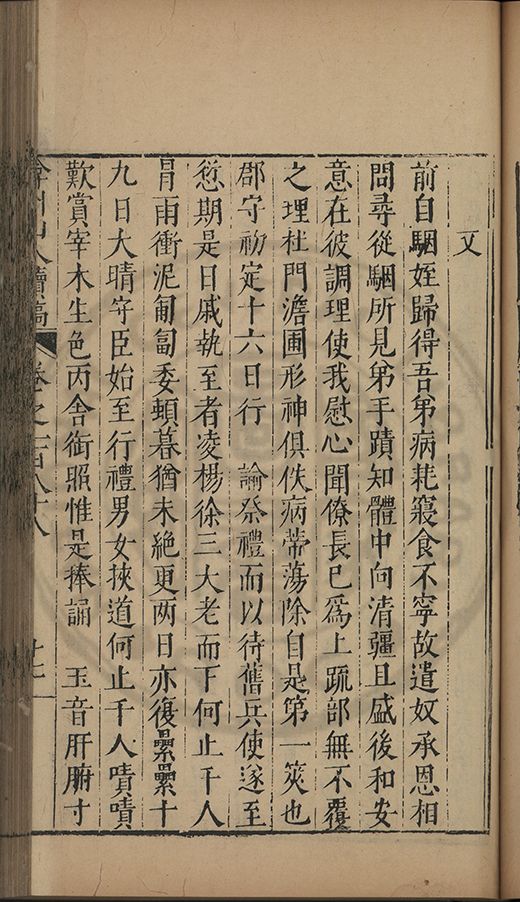 又
前自駰姪歸得吾弟病耗寢食不寧故遣奴承恩相
問尋從駰所見弟手蹟知體中向清彊且盛後和安
意在彼調理使我慰心聞僚長已爲上疏部無不覆
之理杜門澹圃形神俱佚病蒂蕩除自是第一筴也
郡守初定十六日行　諭祭禮而以待舊兵使遂至
愆期是日戚執至者凌楊徐三大老而下何止千人
冐雨衝泥匍匐委頓暮猶未絶更两日亦復纍纍十
九日大晴守臣始至行禮男女挾道何止千人嘖嘖
歎賞宰木生色丙舍銜照惟是捧誦　玉音肝腑寸
弇州山人續稿　卷之一百八十八　十七